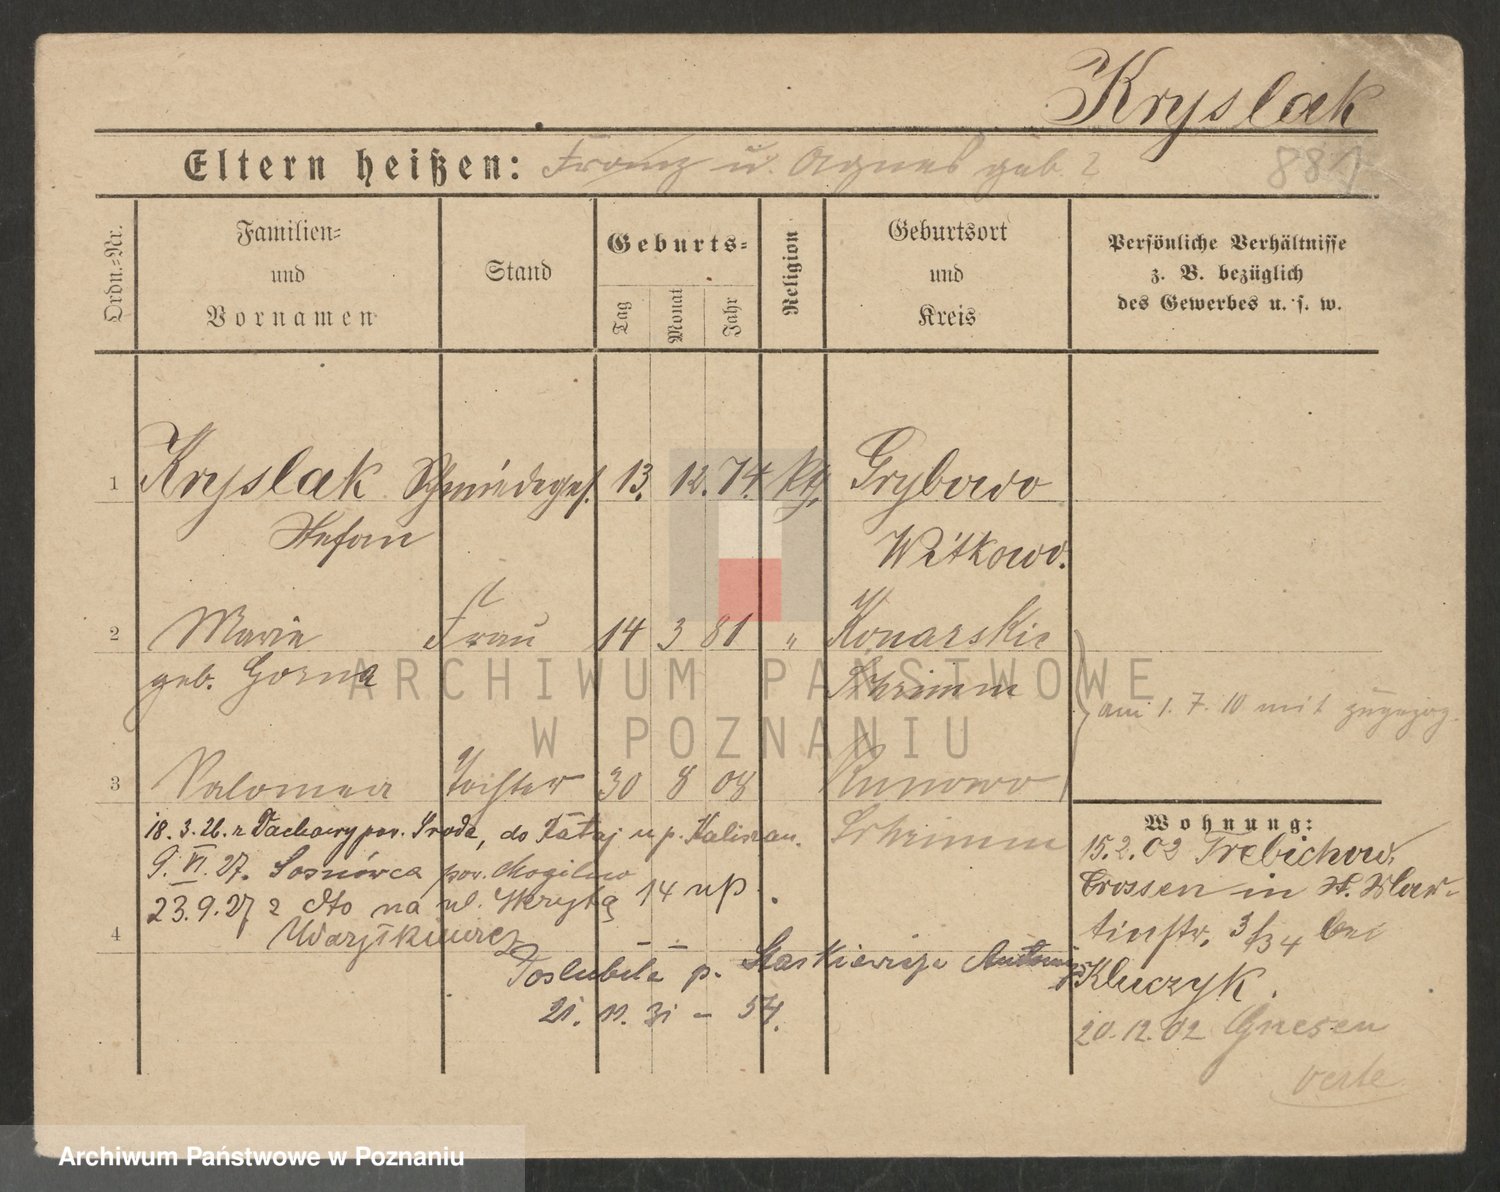 Kryslak
Eltern heißen: Franz u. Agnes geb. ?
881
Ordn.=Nr.
Familien=
und
Vornamen
Stand
Geburts=
Tag
Monat
Jahr
Religion
Geburtsort
und
Kreis
Persönliche Verhältnisse
z. B. bezüglich
des Gewerbes u. s. w.
1 Kryslak Schmiedeges. 13. 12. 74. kth. Grybowo
Stefan Witkowo.
2 Maria Frau 14 3 81 " Konarskie
geb. Gorna Schrimm
am 1. 7. 10 mit zugezog.
3 Salomea Tochter 30 8 08 Kunowo
Schrimm
18. 3. 26. z Dachowy pow. Środa, do p.
9. VI. 27. Sosnówca pow. Mogilno
23. 9. 27 z dto na ul. 14 u p.
4
Poślubiła p. Staskiewicza
21. 11. 31 – 54.
Wohnung:
15. 2. 02 Trebichow,
Crossen in
tinstr. 3/34 bei
Kluczyk.
20. 12. 02 Gnesen
ARCHIWUM PAŃSTWOWE
W POZNANIU
Archiwum Państwowe w Poznaniu